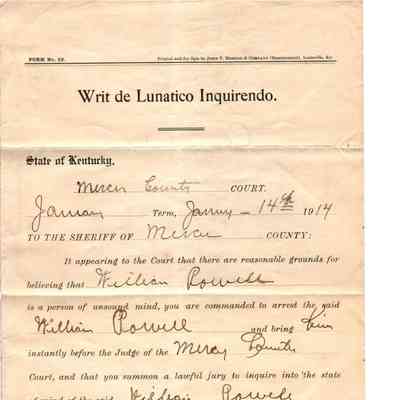 FORM No. 52.
Printed and for Sale by John P. Morton & Company (Incorporated), Louisville, Ky.
Writ de Lunatico Inquirendo.
State of Kentucky,
Mercer County COURT.
January Term, January 14th 1914
TO THE SHERIFF OF Mercer COUNTY:
It appearing to the Court that there are reasonable grounds for
believing that William Powell
is a person of unsound mind, you are commanded to arrest the said
William Powell and bring him
instantly before the Judge of the Mercer County
Court, and that you summon a lawful jury to inquire into the state
of mind of the said William Powell